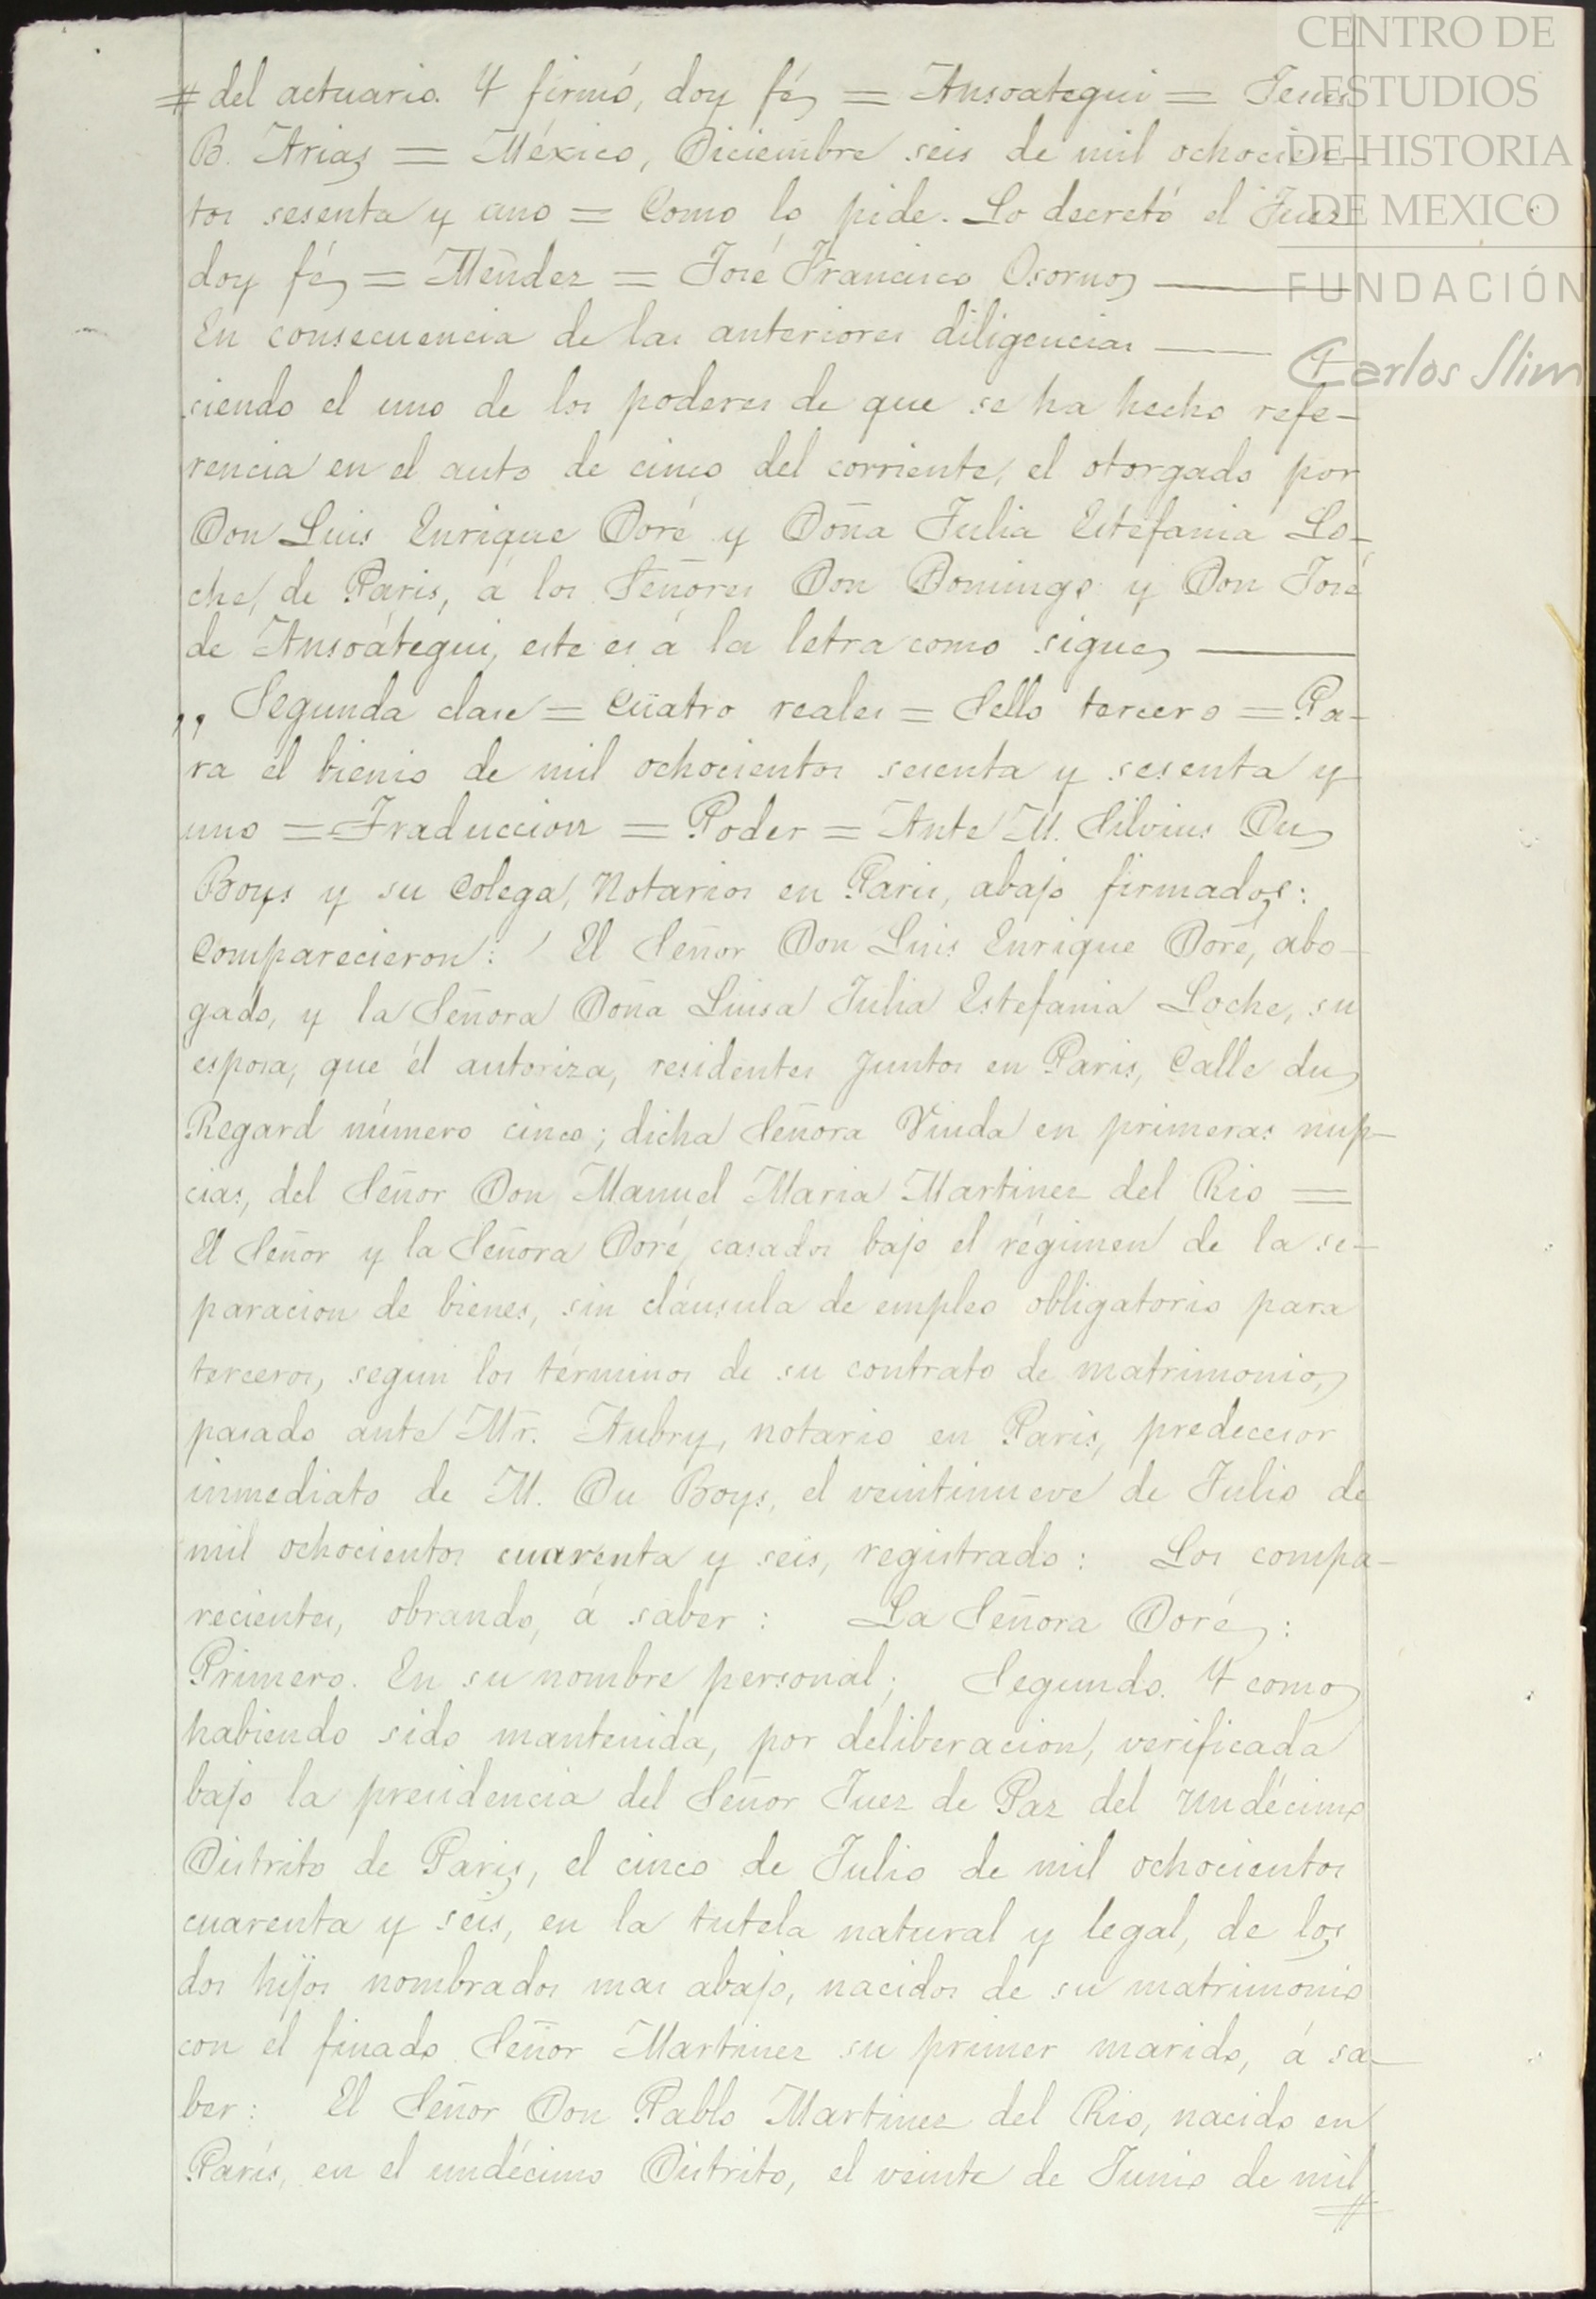 # del actuario. Y firmó, doy fé = Ansoategui = Jesus
B. Arias = México, Diciembre seis de mil ochocien-
tos sesenta y uno = Como lo pide. Lo decretó el Juez
doy fé = Mendez = José Francisco Osorno ———
En consecuencia de las anteriores diligencias ———
siendo el uno de los poderes de que se ha hecho refe-
rencia en el auto de cinco del corriente, el otorgado por
Don Luis Enrique Doré y Doña Julia Estefania Lo-
che, de Paris, á los Señores Don Domingo y Don José
de Ansoátegui, este es á la letra como sigue ———
„ Segunda clase = Cuatro reales = Sello tercero = Pa-
ra el bienio de mil ochocientos sesenta y sesenta y
uno = Traduccion = Poder = Ante M. Silvius Du
Boys y su Colega, Notarios en Paris, abajo firmados:
Comparecieron: El Señor Don Luis Enrique Doré, abo-
gado, y la Señora Doña Luisa Julia Estefania Loche, su
esposa, que él autoriza, residentes juntos en Paris, Calle du
Regard número cinco; dicha Señora Viuda en primeras nup-
cias, del Señor Don Manuel Maria Martinez del Rio =
El Señor y la Señora Doré, casados bajo el régimen de la se-
paracion de bienes, sin cláusula de empleo obligatorio para
terceros, segun los términos de su contrato de matrimonio,
pasado ante Mr. Aubry, notario en Paris, predecesor
inmediato de M. Du Boys, el veintinueve de Julio de
mil ochocientos cuarenta y seis, registrado: Los compa-
recientes, obrando, á saber: La Señora Doré:
Primero. En su nombre personal; Segundo. Y como
habiendo sido mantenida, por deliberacion, verificada
bajo la presidencia del Señor Juez de Paz del undécimo
Distrito de Paris, el cinco de Julio de mil ochocientos
cuarenta y seis, en la tutela natural y legal, de los
dos hijos nombrados mas abajo, nacidos de su matrimonio
con el finado Señor Martinez su primer marido, á sa-
ber: El Señor Don Pablo Martinez del Rio, nacido en
Paris, en el undécimo Distrito, el veinte de Junio de mil #
CENTRO DE
ESTUDIOS
DE HISTORIA
DE MEXICO
FUNDACIÓN
Carlos Slim